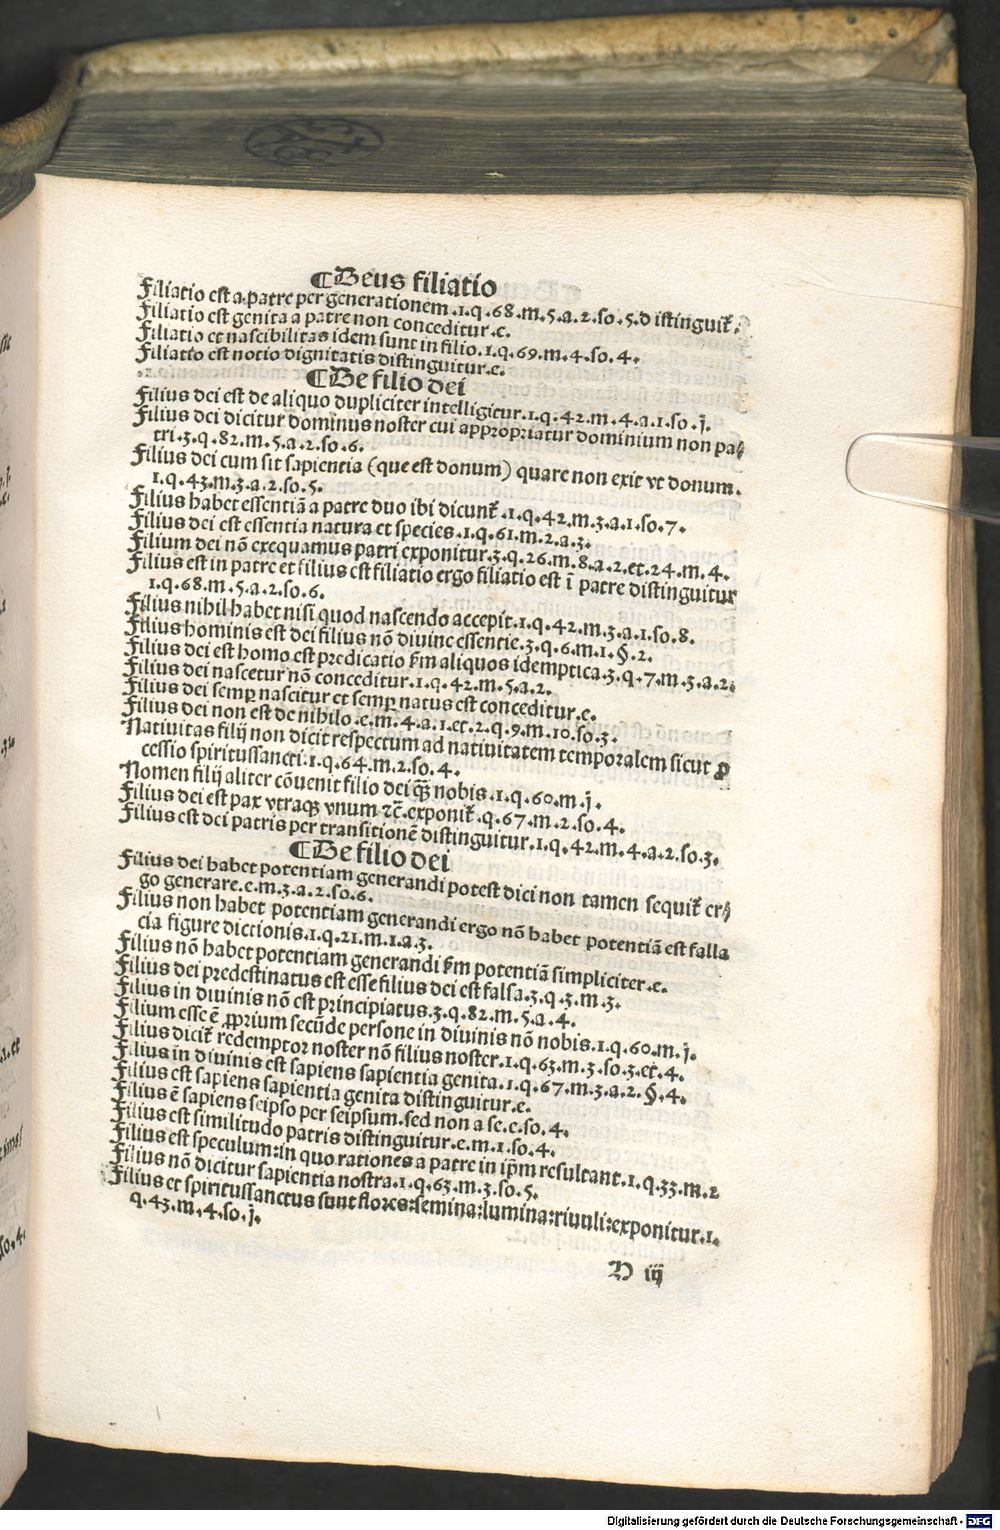 ¶Deus filiatio
Filiatio est a patre per generationem .1.q.68.m.5.a.2.so.5.d istinguit᷑.
Filiatio est genita a patre non conceditur.e.
Filiatio et nascibilitas idem sunt in filio.1.q.69.m.4.so.4.
Filiatio est notio dignitatis distinguitur.e.
¶De filio dei
Filius dei est de aliquo dupliciter intelligitur.1.q.42.m.4.a.1.so.j.
Filius dei dicitur dominus noster cui appropriatur dominium non pa⸗
tri.3.q.82.m.5.a.2.so.6.
Filius dei cum sit sapientia (que est donum) quare non exit vt donum.
1.q.43.m.3.a.2.so.5.
Filius habet essentiā a patre duo ibi dicunt᷑.1.q.42.m.3.a.1.so.7.
Filius dei est essentia natura et species.1.q.61.m.2.a.3.
Filium dei nō exequamus patri exponitur.3.q.26.m.8.a.2.et.24.m.4.
Filius est in patre et filius est filiatio ergo filiatio est ī patre distinguitur
1.q.68.m.5.a.2.so.6.
Filius nihil habet nisi quod nascendo accepit.1.q.42.m.3.a.1.so.8.
Filius hominis est dei filius nō divine essentie.3.q.6.m.1.§.2.
Filius dei est homo est predicatio ẜm aliquos idemptica.3.q.7.m.3.a.2.
Filius dei nascetur nō conceditur.1.q.42.m.5.a.2.
Filius dei semꝑ nascitur et semꝑ natus est conceditur.e.
Filius dei non est de nihilo.e.m.4.a.1.et.2.q.9.m.10.so.3.
Nativitas filij non dicit respectum ad nativitatem temporalem sicut ꝓ
cessio spiritussancti.1.q.64.m.2.so.4.
Nomen filij aliter cōvenit filio dei q̄ȝ nobis.1.q.60.m.j.
Filius dei est pax vtraqȝ vnum ⁊c̄.exponit᷑.q.67.m.2.so.4.
Filius est dei patris per transitionē distinguitur.1.q.42.m.4.a.2.so.3.
¶De filio dei
Filius dei habet potentiam generandi potest dici non tamen sequit᷑ er⸗
go generare.e.m.3.a.2.so.6.
Filius non habet potentiam generandi ergo nō habet potentiā est falla
cia figure dictionis.1.q.21.m.1.a.3.
Filius nō habet potentiam generandi ẜm potentiā simpliciter.e.
Filius dei predestinatus est esse filius dei est falsa.3.q.3.m.3.
Filius in divinis nō est principiatus.3.q.82.m.5.a.4.
Filium esse ē ꝓprium secūde persone in divinis nō nobis.1.q.60.m.j.
Filius dicit᷑ redemptor noster nō filius noster.1.q.63.m.3.so.3.et.4.
Filius in divinis est sapiens sapientia genita.1.q.67.m.3.a.2.§.4.
Filius est sapiens sapientia genita distinguitur.e.
Filius ē sapiens seipso per seipsum.sed non a se.e.so.4.
Filius est similitudo patris distinguitur.e.m.1.so.4.
Filius est speculum:in quo rationes a patre in ip̄m resultant.1.q.33.m.2
Filius nō dicitur sapientia nostra.1.q.63.m.3.so.5.
Filius et spiritussanctus sunt flores:semina:lumina:riuuli:exponitur.1.
q.43.m.4.so.j.
D iij
Digitalisierung gefördert durch die Deutsche Forschungsgemeinschaft - DFG